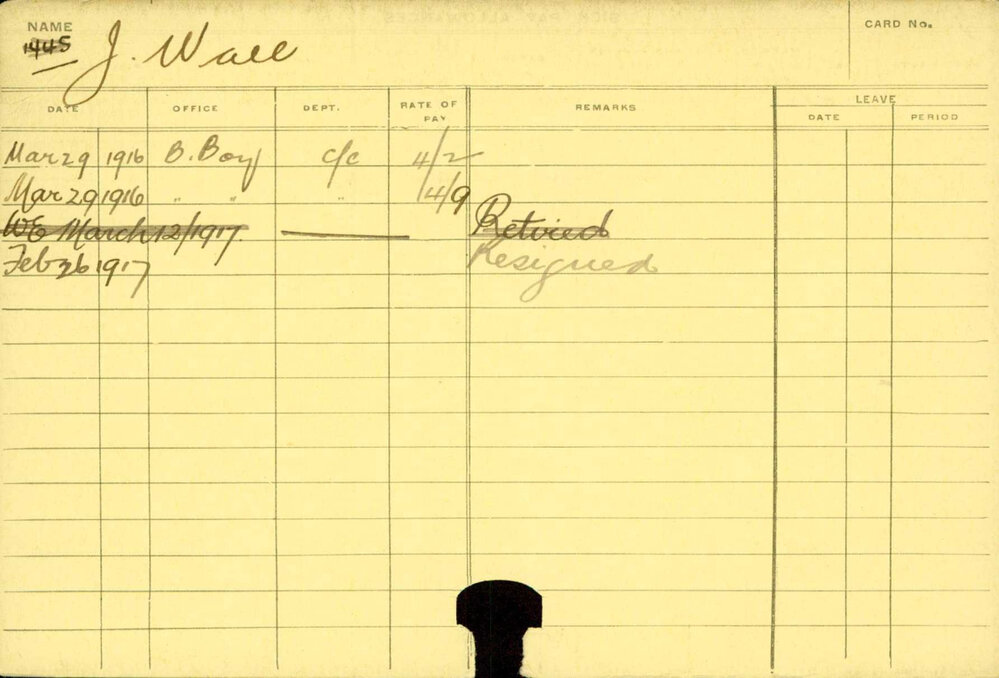 NAME
CARD No.
1445
J. Wall
DATE OFFICE DEPT. RATE OF PAY REMARKS LEAVE
DATE PERIOD
Mar 29 1916 B. Boy c/c 4/2
Mar 29 1916 " " " 4/9
WE March 12/1917. Retired
Feb 26 1917 Resigned